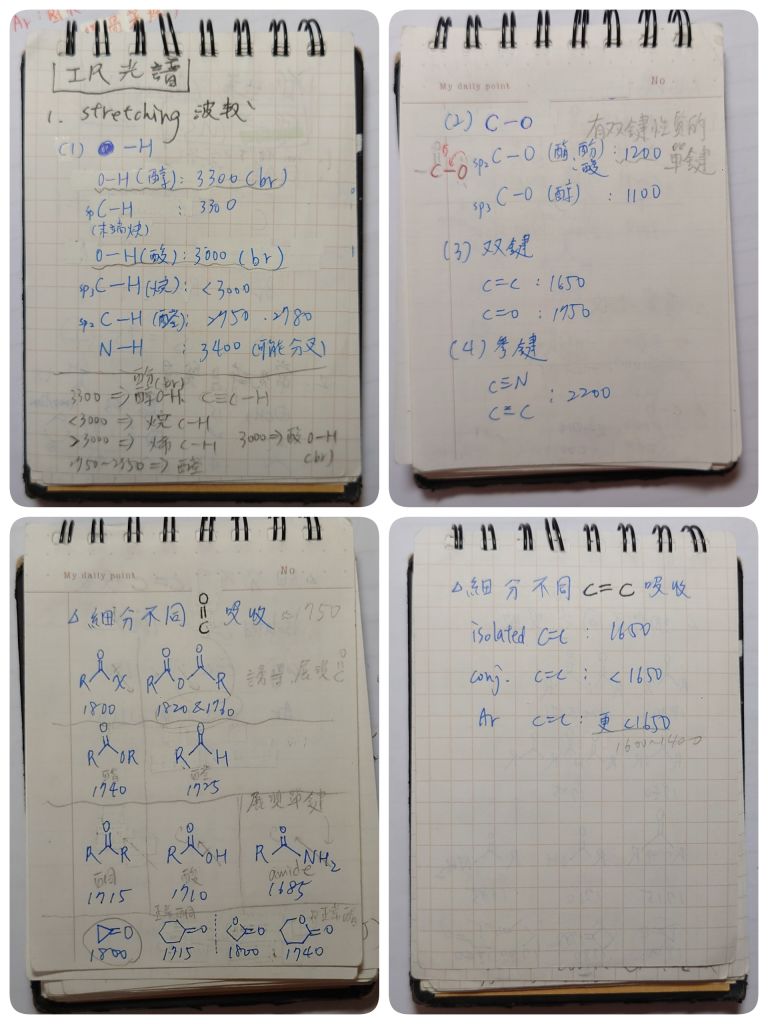 IR 光譜
1. stretching 波數
(1) -H
O-H (醇): 3300 (br)
sp C-H : 3300
(末端炔)
O-H (酸): 3000 (br)
sp3 C-H (烷): <3000
sp2 C-H (醛): 2750 . 2780
N-H : 3400 (可能分叉)
酚(br)
3300 => 醇O-H. C≡C-H
<3000 => 烷 C-H
>3000 => 烯 C-H 3000 => 酸 O-H
(br)
=> 醛
My daily point No
(2) C-O 有双鍵性質的
單鍵
C-O
sp2 C-O (酯,酚,酸) : 1200
sp3 C-O (醇) : 1100
(3) 双鍵
C=C : 1650
C=O : 1750
(4) 參鍵
C≡N
C≡C : 2200
My daily point No
△ 細分不同 O=C 吸收 ≈1750
R O X
R O O O R
誘導.展現 O=C
1800 1820 & 1760
R O OR
R O H
酯 醛
1740 1725
展現單鍵
R O R
R O OH
R O NH2
酮 酸 amide
1715 1710 1685
正常酮
=O =O O =O O =O
1800 1715 1800 1740
△ 細分不同 C=C 吸收
isolated C=C : 1650
conj. C=C : <1650
Ar C=C : 更<1650
1600~1400